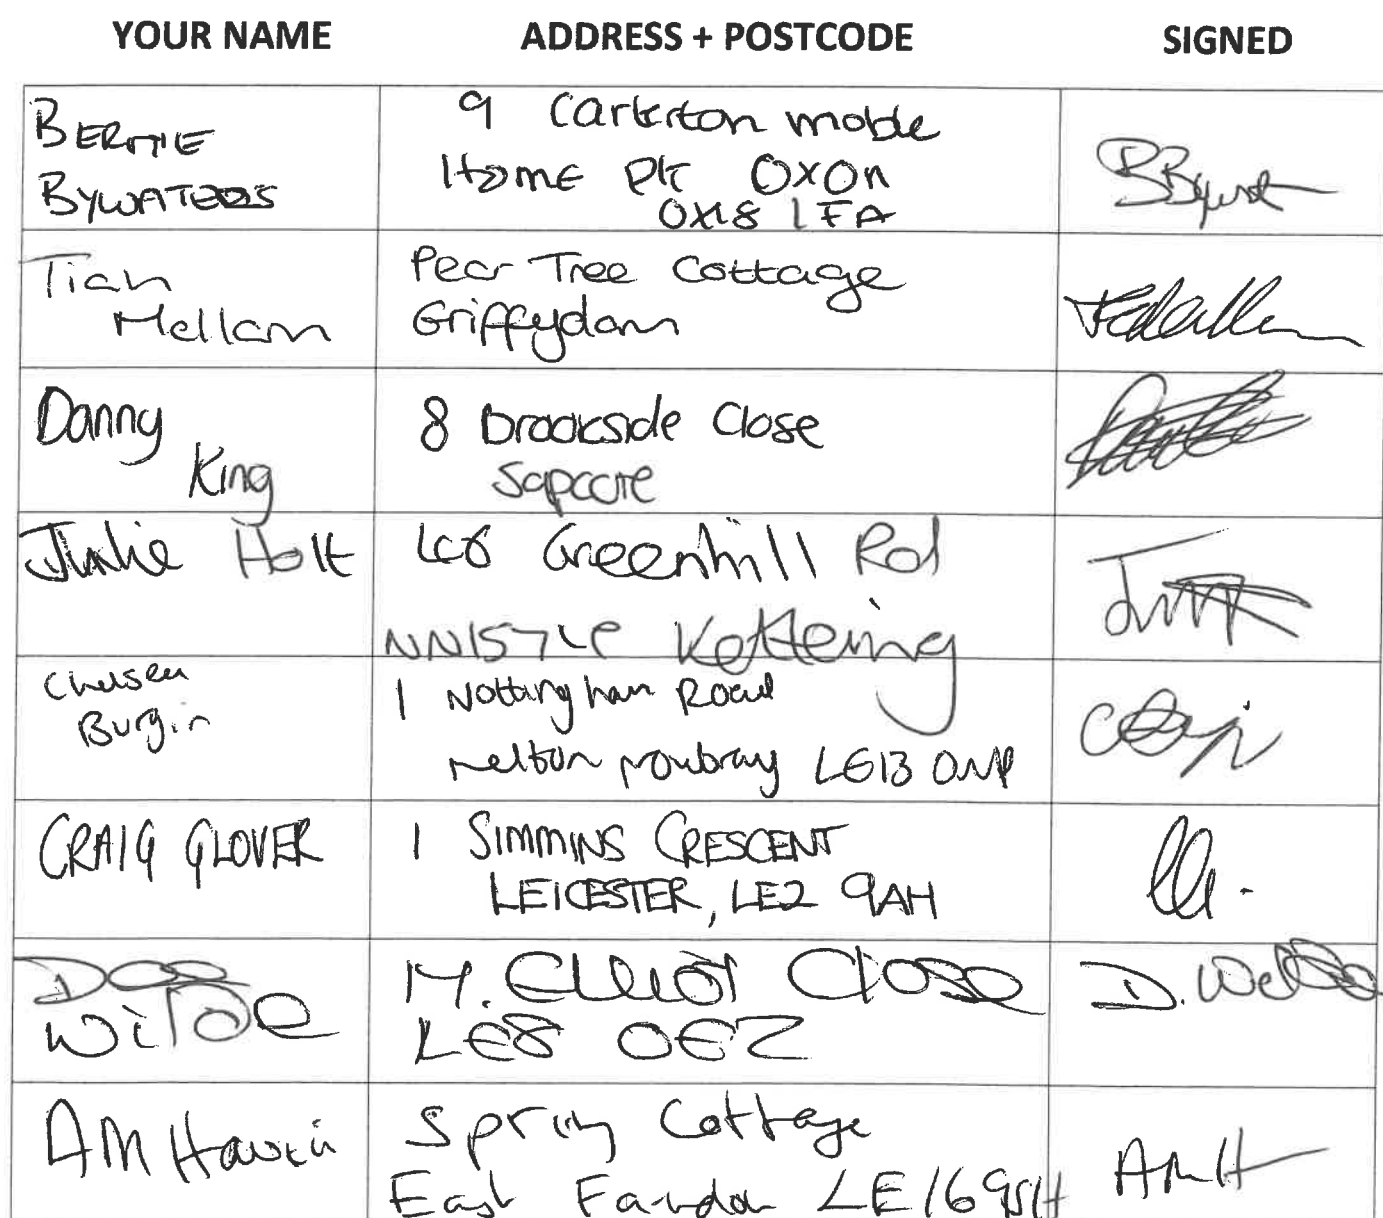 YOUR NAME ADDRESS + POSTCODE SIGNED
BERNIE
BYWATERS
9 Carterton moble
Home Pk Oxon
OX18 1FA
Tian
Mellam
Pear Tree Cottage
Griffydam
Danny
King
8 Brookside Close
Sapcote
Julie Holt
Greenhill Rd
NN15 7LP Kettering
Chelsea
Burgin
1 Nottingham Road
Melton Mowbray LE13 0NP
CRAIG GLOVER
1 SIMMINS CRESCENT
LEICESTER, LE2 9AH
Dee
Wilde
Elliot Close
LE8 0EZ
D.
AM
Spring Cottage
East Farndon LE16 9SH
AMH